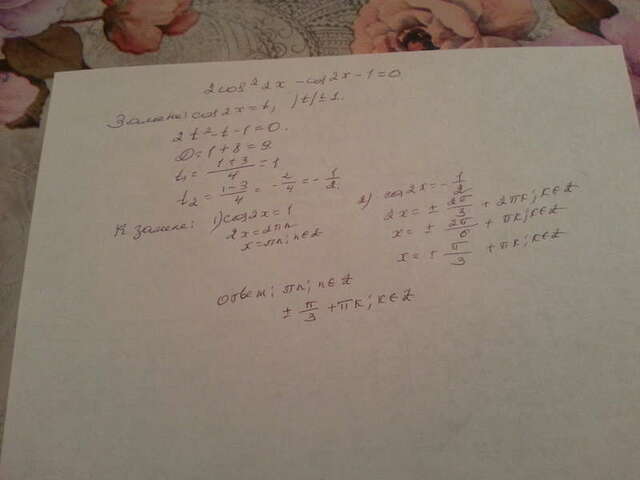 2cos²2x - cos2x - 1 = 0
Замена: cos2x = t, |t| ≤ 1.
2t² - t - 1 = 0.
D = 1 + 8 = 9
t₁ = (1+3)/4 = 1
t₂ = (1-3)/4 = -2/4 = -1/2.
К замене: 1) cos2x = 1
2x = 2πn
x = πn; n ∈ Z
2) cos2x = -1/2
2x = ± 2π/3 + 2πk; k ∈ Z
x = ± 2π/6 + πk; k ∈ Z
x = ± π/3 + πk; k ∈ Z
ответ: πn; n ∈ Z
± π/3 + πk; k ∈ Z